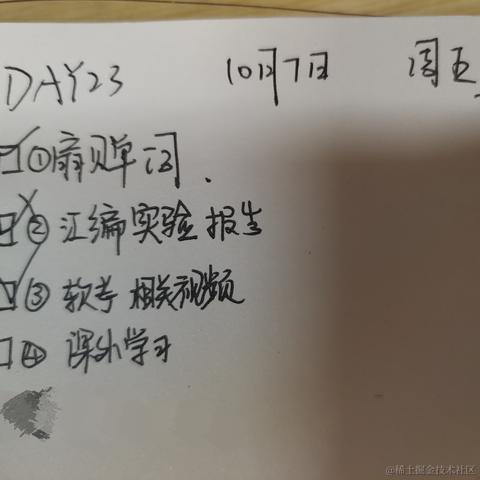 DAY23 10月7日 周五
①扇贝单词.
②汇编实验报告
③软考相关视频
④课外学习
@稀土掘金技术社区